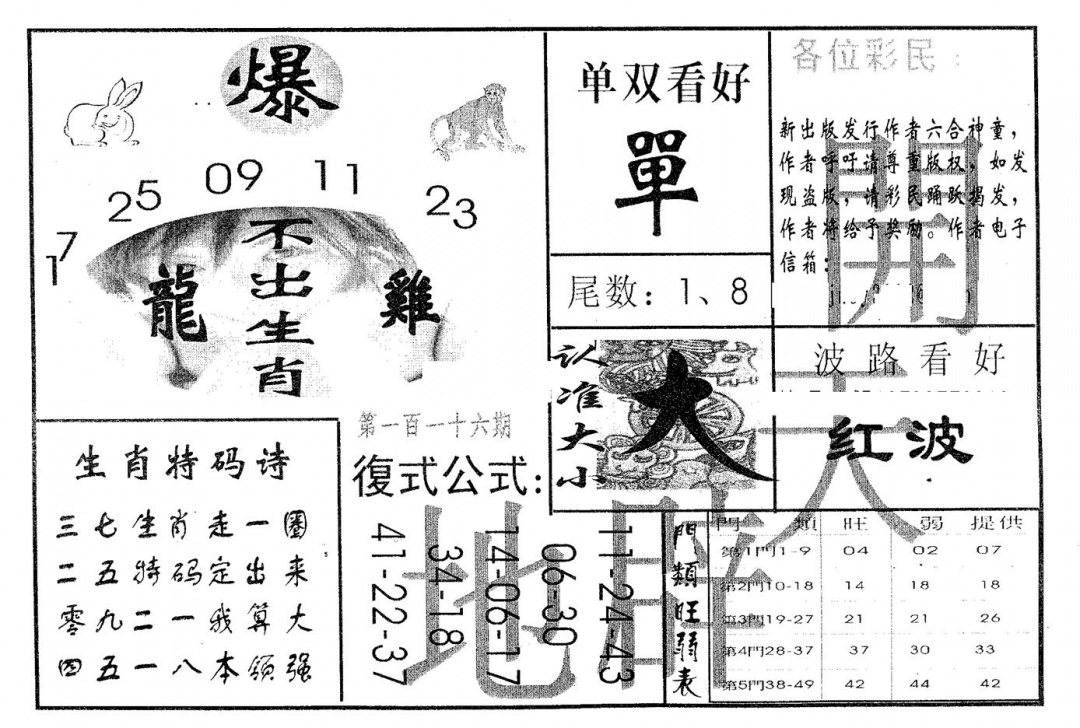 爆
17
25
09
11
23
龍
不出生肖
雞
单双看好
單
尾数：1、8
各位彩民：
新出版发行作者六合神童，
作者呼吁请尊重版权，如发
现盗版，请彩民踊跃揭发，
作者将给予奖励。作者电子
信箱：
認准大小
大
波路看好
红波
生肖特码诗
三七生肖走一圈
二五特码定出来
零九二一我算大
四五一八本领强
第一百一十六期
復式公式：
41-22-37
34-18
14-06-17
06-30
11-24-43
開
天
地
門類旺弱表
門類 旺 弱 提供
第1門1-9 04 02 07
第2門10-18 14 18 18
第3門19-27 21 21 26
第4門28-37 37 30 33
第5門38-49 42 44 42